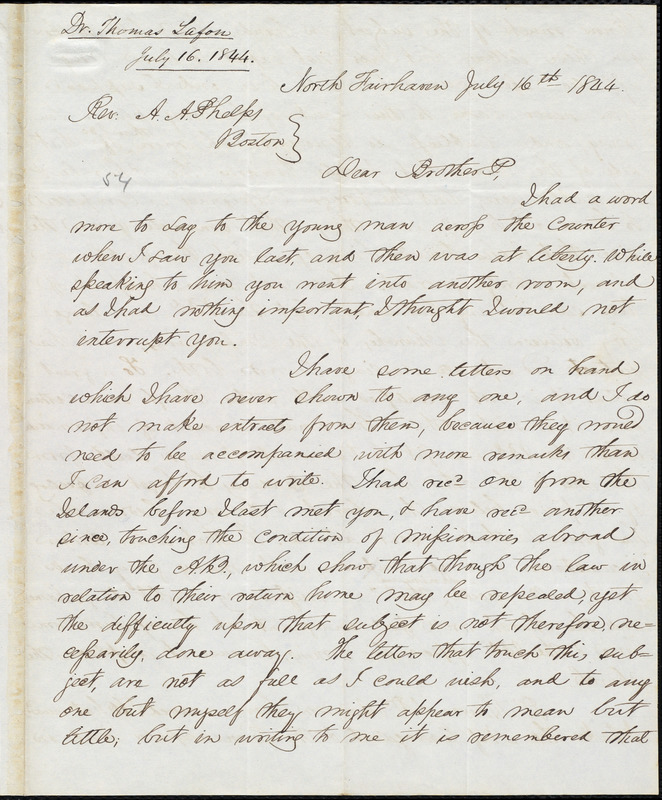 Dr. Thomas Lafon
July 16. 1844.
North Fairhaven July 16th 1844.
Rev. A. A. Phelps
Boston
54
Dear Brother P,
I had a word
more to say to the young man across the counter
when I saw you last, and then was at liberty. While
speaking to him you went into another room, and
as I had nothing important, I thought I would not
interrupt you.
I have some letters on hand
which I have never shown to any one, and I do
not make extracts from them, because they would
need to be accompanied with more remarks than
I can afford to write. I had recd one from the
Islands before I last met you, & have recd another
since, touching the condition of missionaries abroad
under the A.B., which show that though the law in
relation to their return home may be repealed, yet
the difficulty upon that subject is not therefore, ne=
cessarily, done away. The letters that touch this sub=
ject, are not as full as I could wish, and to any
one but myself they might appear to mean but
little; but in writing to me it is remembered that